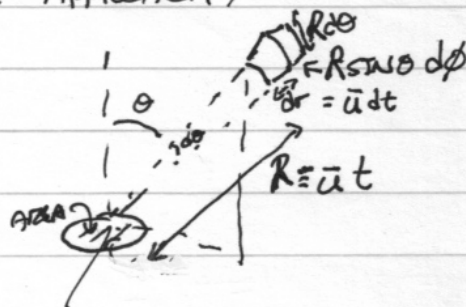 Rdθ
θ
R SINθ dϕ
dr = ūdt
dθ
R = ūt
AREA